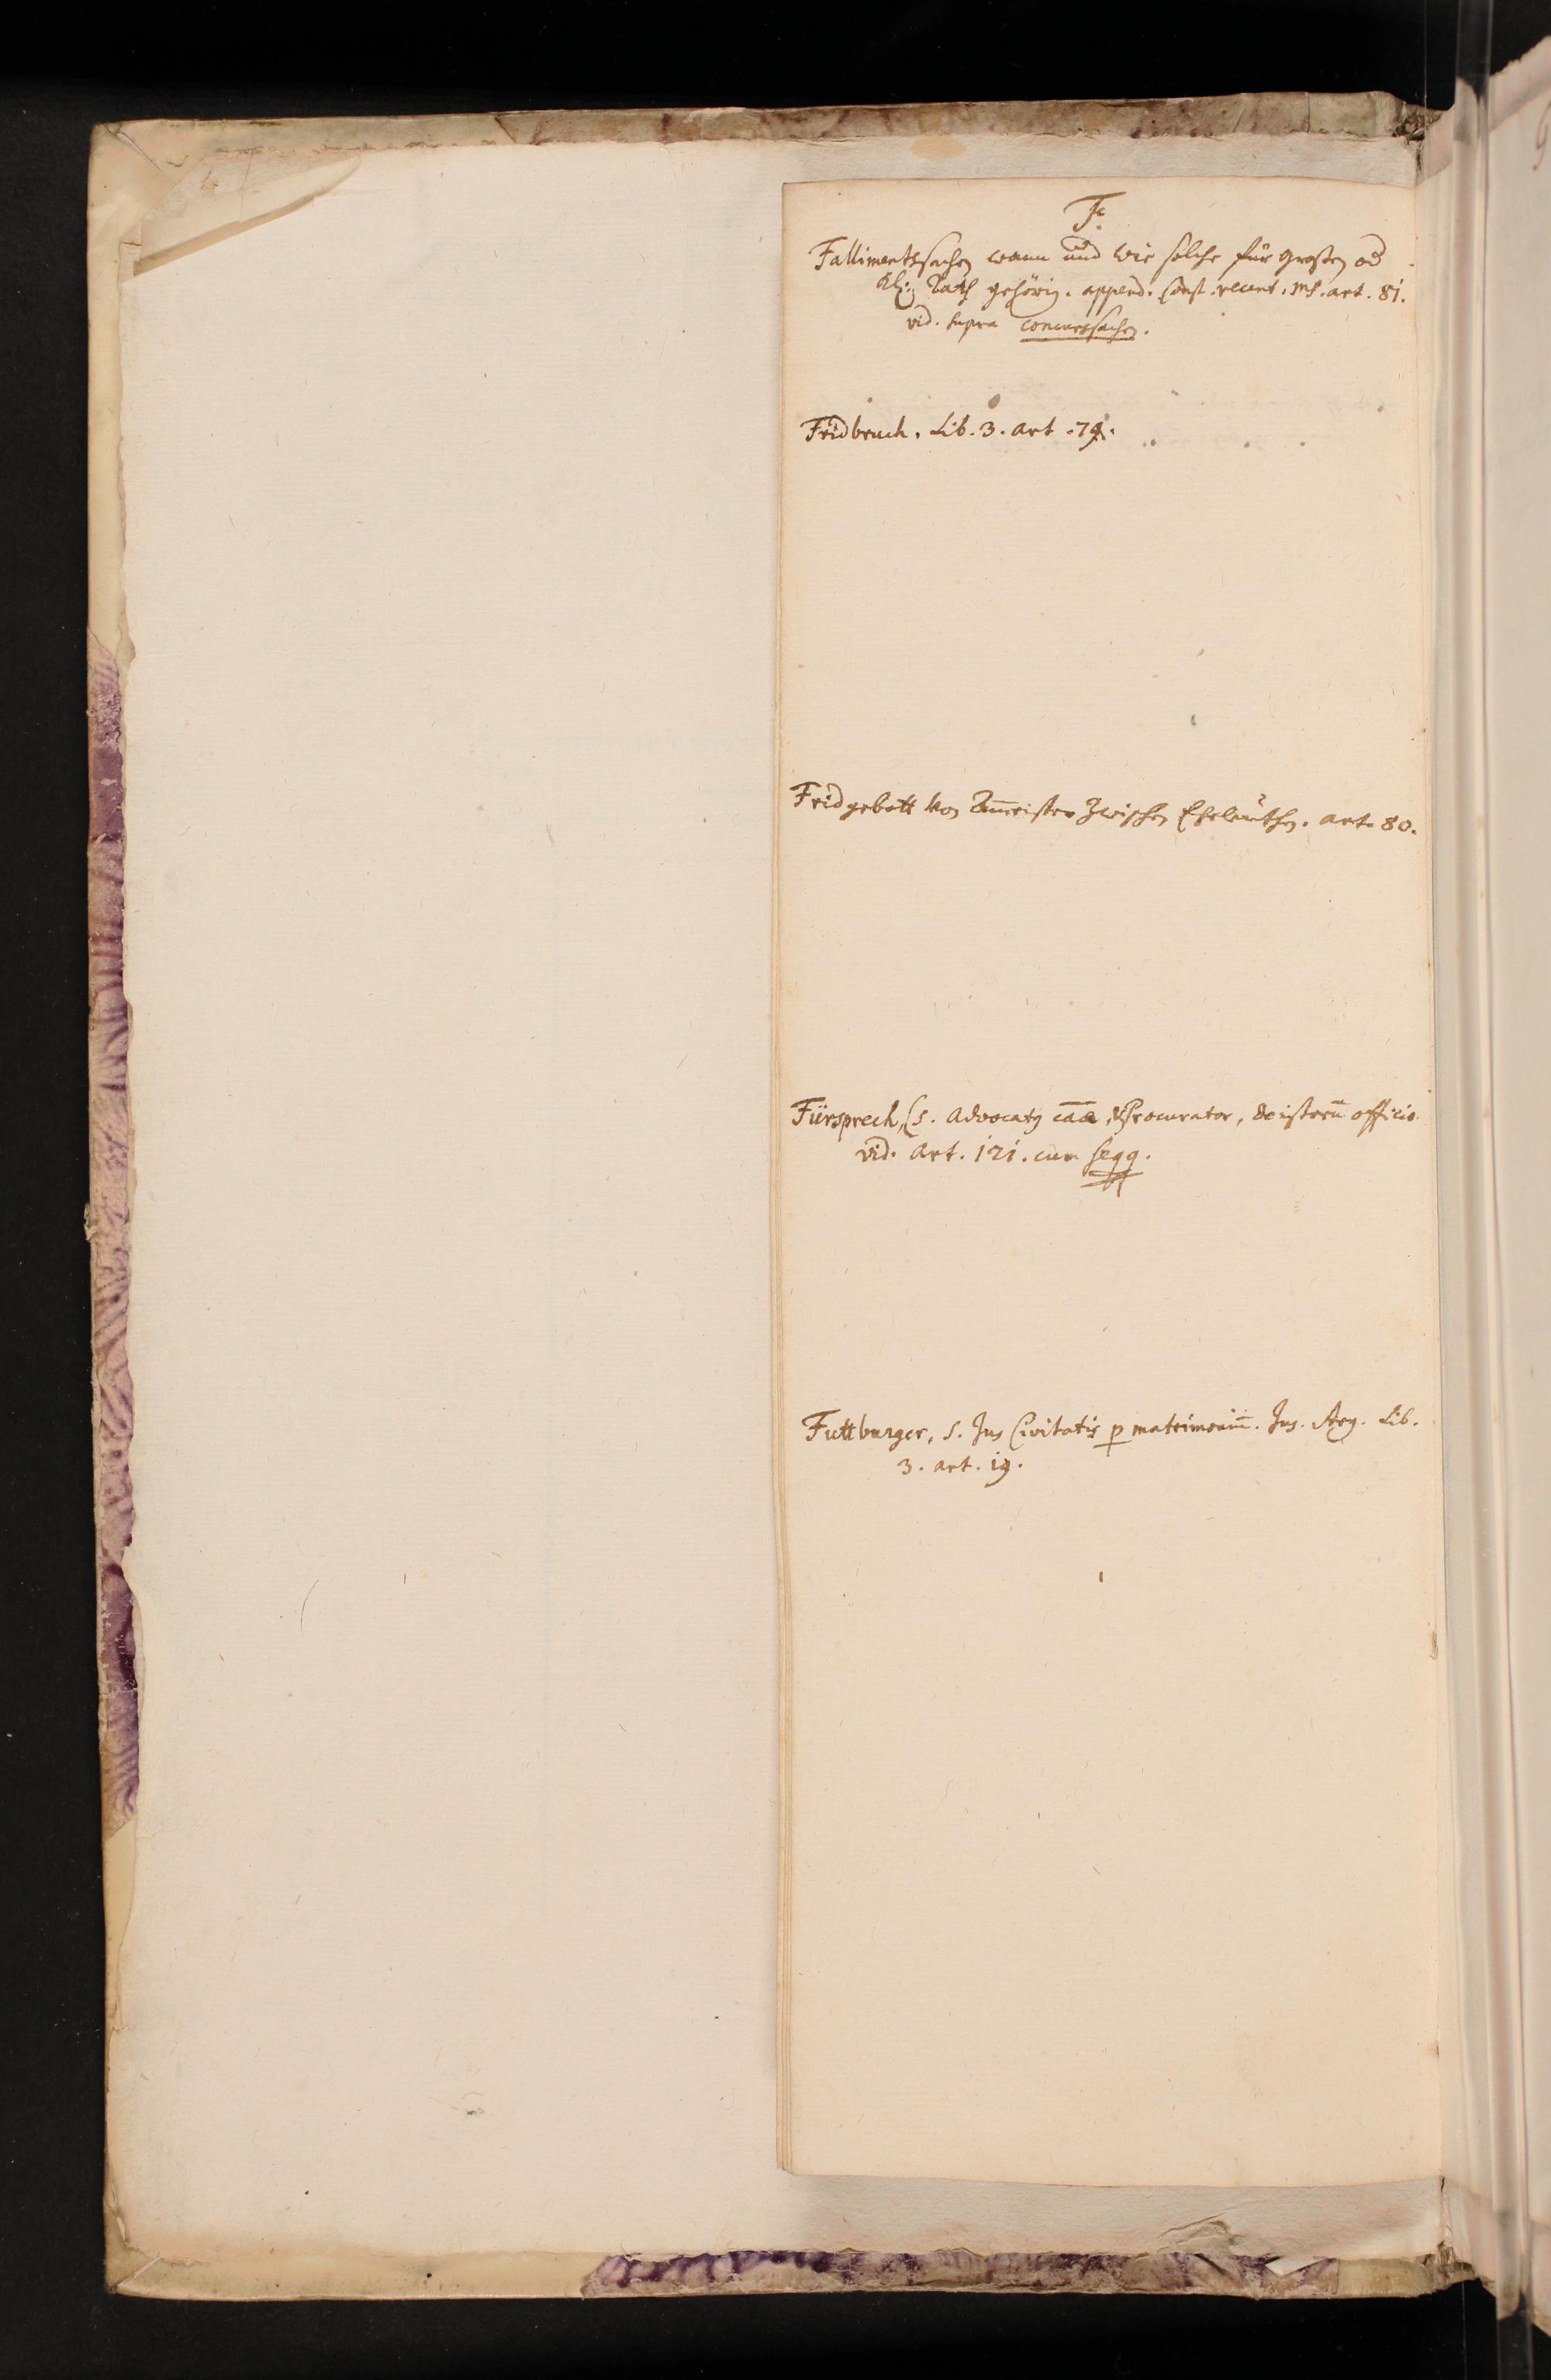 F.
Fallimentssachen wann und wie solche für grosen od
Kl: Rath gehörig. append. Const. recent. MS. art. 81.
vid. supra concurssachen.
Fridbruch. Lib. 3. art. 79.
Fridgebott von zwischen Eheleuthen. art. 80.
Fürsprech, s. Advocatg cāā, & Procurator, de istorū officio
vid. Art. 121. cum seqq.
Futtburger, s. Jus Civitatis p matrimoniū. Jus. Arg. Lib.
3. art. 19.